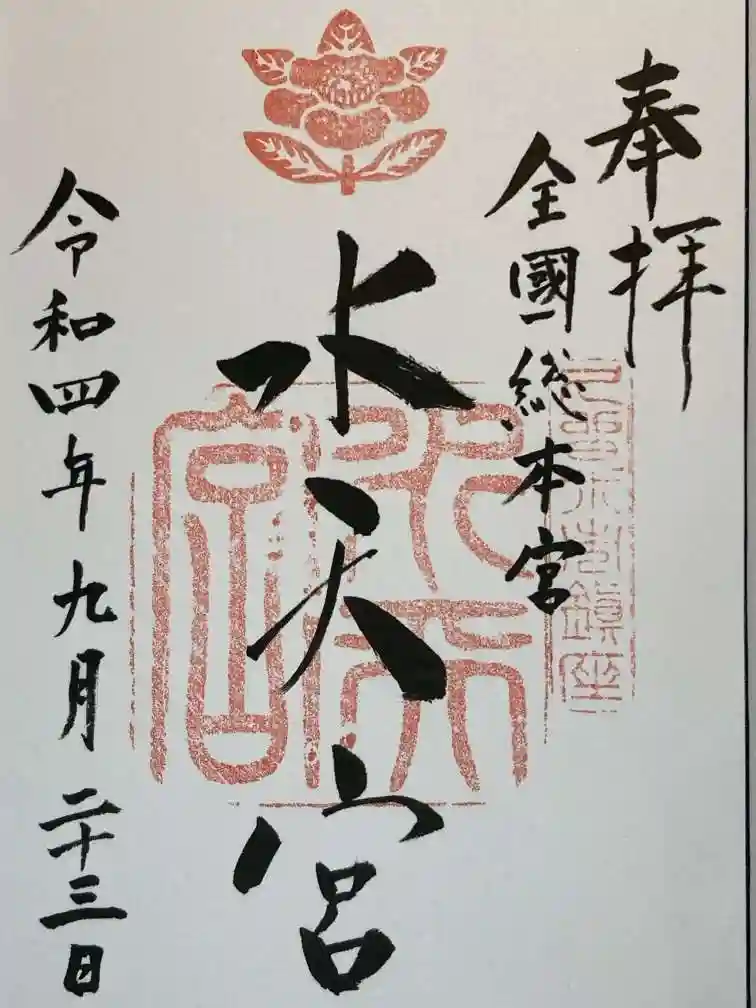 奉拝
全國総本宮
水天宮
令和四年九月二十三日
水天宮